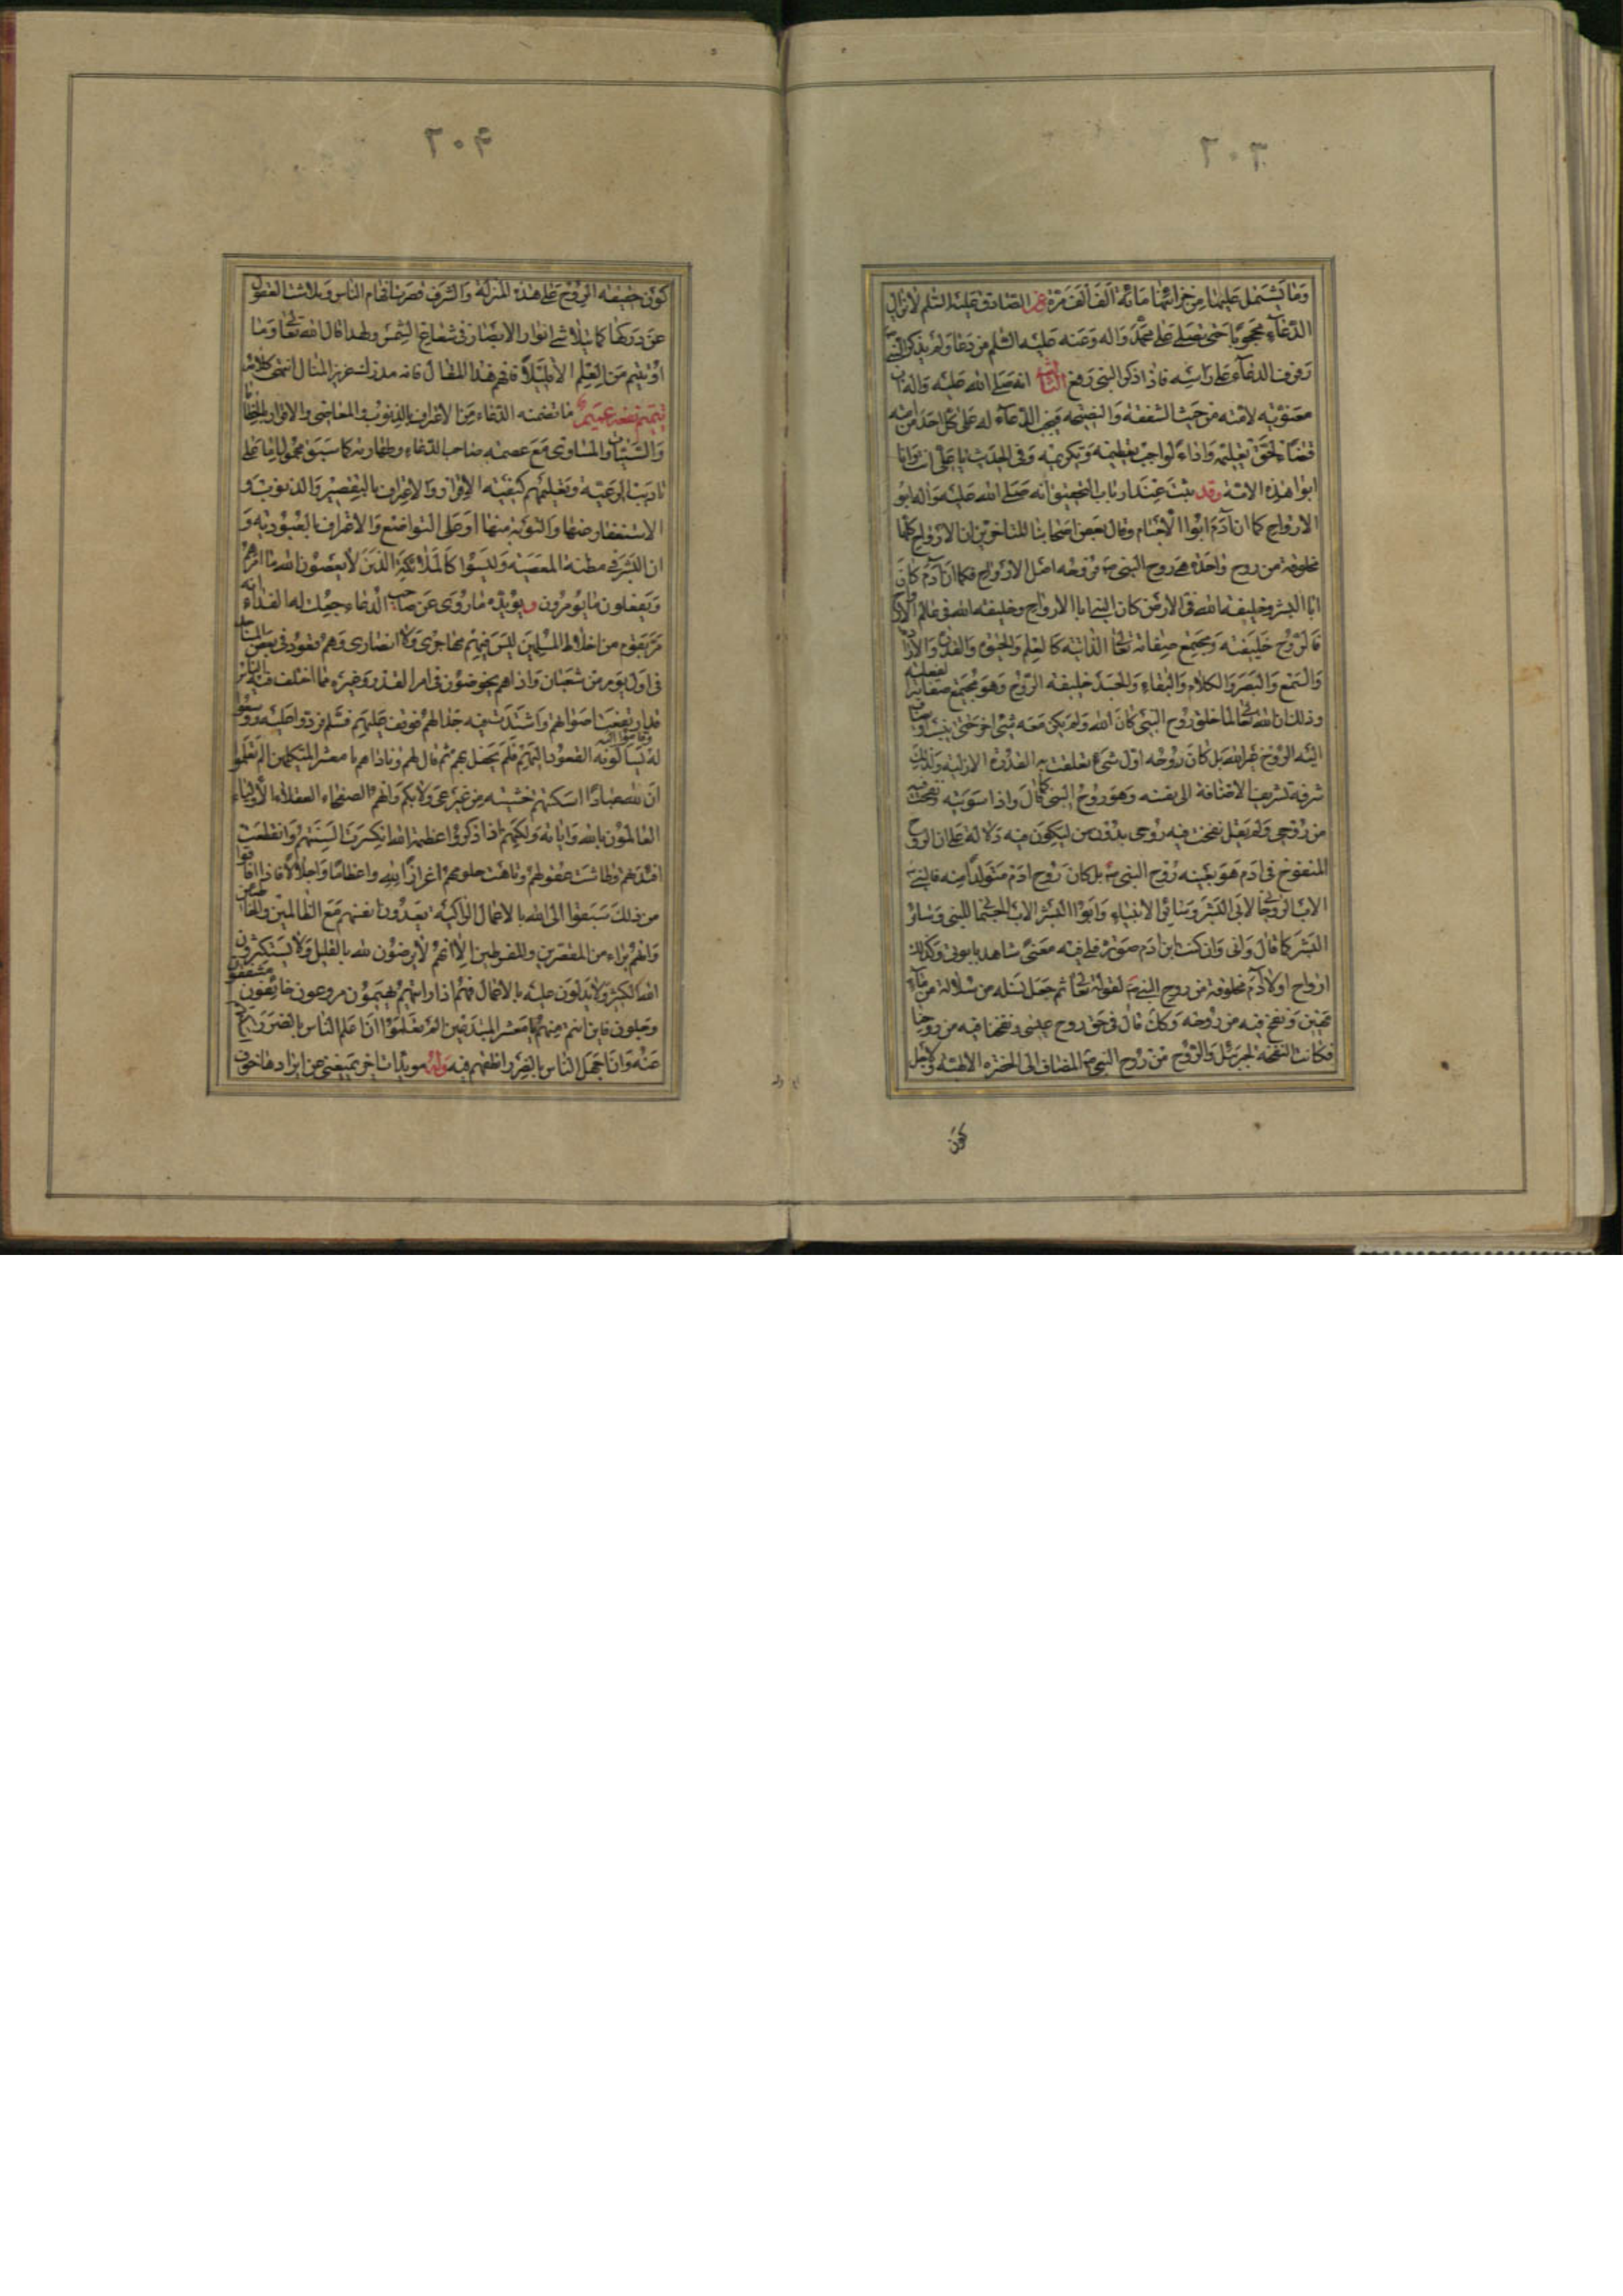 ٢٠٣
وما يشتمل عليها من خزائنها مائة الف الف مرة عن الصادق عليه السلم لا يزال
الدعاء محجوبا حتى يصلى على محمد واله وعنه عليه السلم من دعا ولم يذكر النبى
رفرف الدعاء على راسه فاذا ذكر النبى رفع الثالث انه صلى الله عليه واله اب
معنوى لامته من حيث الشفقة والنصيحة فيجب الدعاء له على كل احد من امته
قضاء لحق تعليمه واداء لواجب تعظيمه وتكريمه وفى الحديث يا على انا وانت
ابوا هذه الامة وقد ثبت عند ارباب التحقيق انه صلى الله عليه واله ابو
الارواح كما ان آدم ابوا الاجسام وقال بعض اصحابنا المتاخرين ان الارواح كلها
مخلوقة من روح واحدة هى روح النبى ص فروحه اصل الارواح فكما ان آدم كان
ابا البشر وخليفة الله فى الارض كان النبى ابا الارواح وخليفة الله فى عالم الارواح
فالروح خليفته ومجمع صفاته تعالى الذاتية كالعلم والحيوة والقدرة والارادة
والسمع والبصر والكلام والبقاء والجسد خليفة الروح وهو مجمع صفاته الفعلية
وذلك ان الله تعالى لما خلق روح النبى كان الله ولم يكن معه شئ اخر حتى ينسب او يضاف
اليه الروح غير الله بل كان روحه اول شئ تعلقت به القدرة الازلية ولذلك
شرفه تشريف الاضافة الى نفسه وهو روح النبى كما قال واذا سويته ونفخت فيه
من روحى ولم يقل نفخت فيه روحى بدون من ليكون فيه دلالة على ان الروح
المنفوخ فى ادم هو بعينه روح النبى ص بل كان روح ادم متولدا منه فالنبى ص
الاب الروحانى لابى البشر وسائر الانبياء وابوا البشر الاب الجسمانى للنبى وسائر
البشر كما قال وانى وان كنت ابن ادم صورة فلى فيه معنى شاهد بابوتى وكذلك
ارواح اولاد آدم مخلوقة من روح النبى ص لقوله تعالى ثم جعل نسله من سلالة من ماء
مهين ونفخ فيه من روحه وكك قال فى حق روح عيسى ونفخنا فيه من روحنا
فكانت النفخة لجبرئيل والروح من روح النبى ص المضاف الى الحضرة الالهية ولاجل
كون
٢٠٤
كون حقيقة الروح على هذه المنزلة والشرف قصرت افهام الناس وتلاشت العقول
عن دركها كما يتلاشى انوار الابصار فى شعاع الشمس ولهذا قال الله تعالى وما
اوتيتم من العلم الا قليلا فافهم هذا المقال فانه مدرك عزيز المنال انتهى كلامه
تتميم نفعه عميم ما تضمنه الدعاء من الاعتراف بالذنوب والمعاصى والاقرار بالخطايا
والسيئات والمساوى مع عصمة صاحب الدعاء وطهارته كما سبق محمول اما على
تاديب الرعية وتعليمهم كيفية الاقرار والاعتراف بالتقصير والذنوب و
الاستغفار منها والتوبة منها او على التواضع والاعتراف بالعبودية و
ان البشر فى مظنة المعصية وليسوا كالملائكة الذين لا يعصون الله ما امرهم
ويفعلون ما يؤمرون ويؤيده ما روى عن صاحب الدعاء جعلت له الفداء انه
مر بقوم من اخلاط المسلمين ليس فيهم مهاجرى ولا انصارى وهم قعود فى بعض المساجد
فى اول يوم من شعبان واذا هم يخوضون فى امر القدر وغيره مما اختلف فيه الناس
قد ارتفعت اصواتهم واشتد فيه جدالهم فوقف عليهم فسلم فردوا عليه ووسعوا
له وقاموا اليه يسألونه القعود اليهم فلم يحفل بهم ثم قال لهم وناداهم يا معشر المتكلمين الم تعلموا
ان لله عبادا اسكتتهم خشيته من غير عى ولا بكم وانهم الفصحاء العقلاء الاولياء
العالمون بالله وايامه ولكنهم اذا ذكروا عظمة الله انكسرت السنتهم وانقطعت
افئدتهم وطاشت عقولهم وتاهت حلومهم اعزازا لله واعظاما واجلالا فاذا افاقوا
من ذلك سبقوا الى الله بالاعمال الزاكية يعدون انفسهم مع الظالمين والخاطئين
وانهم براء من المقصرين والمفرطين الا انهم لا يرضون لله بالقليل ولا يستكثرون
الله الكثير ولا يدلون عليه بالاعمال فهم اذا رايتهم مهيمون مروعون خائفون مشفقون
وجلون فاين انتم منهم يا معشر المبتدعين الم تعلموا ان اعلم الناس بالضرر اسكتهم
عنه وان اجهل الناس بالضرر انطقهم فيه وله مؤيدات اخر يمنعنى عن ايرادها خوف